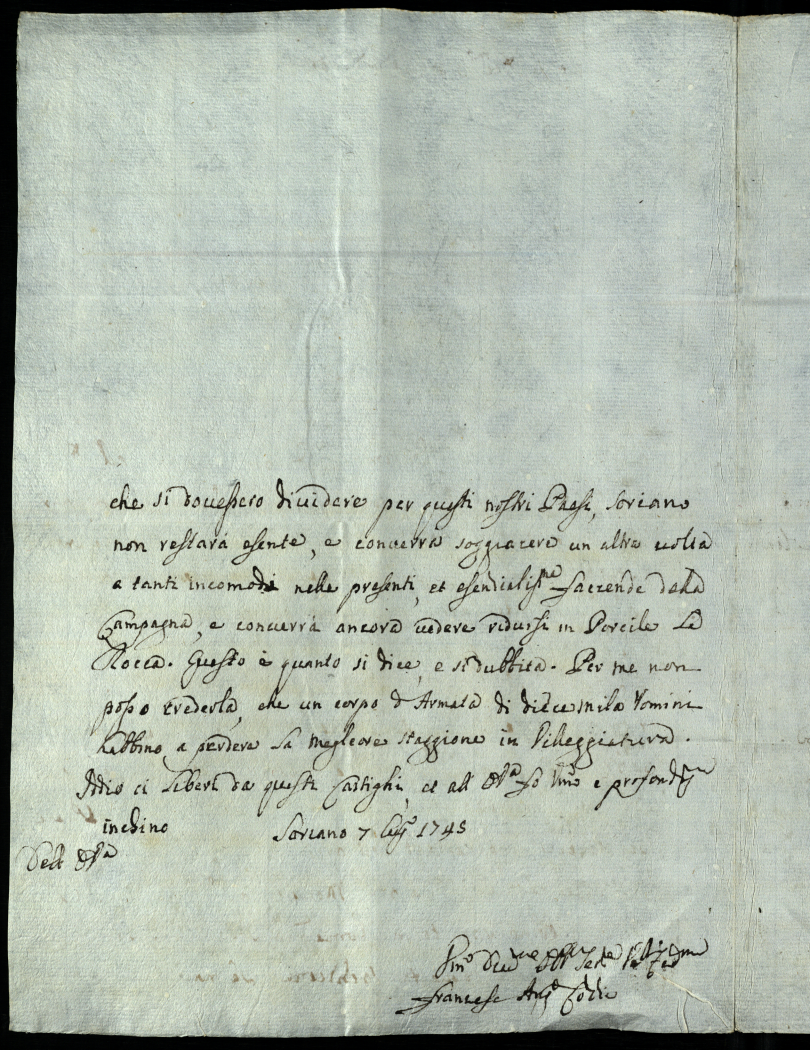 che si dovessero dividere per questi nostri Paesi, Soriano
non restará esente, e converrá soggiacere un altra volta
a tanti incomodi nelle presenti, et esenzialis.me faccende della
Campagna, e converrá ancora vedere ridursi in Porcile La
Rocca. Questo è quanto si dice, e si dubbita. Per me non
posso crederla, che un corpo d'Armata di diecimila Uomini
habbino a perdere la megliore staggione in Villeggiatura.
Iddio ci liberi da questi Castighi, et all' fo e profond.
inchino Soriano 7 1745
Dell'
Francesc Ang.